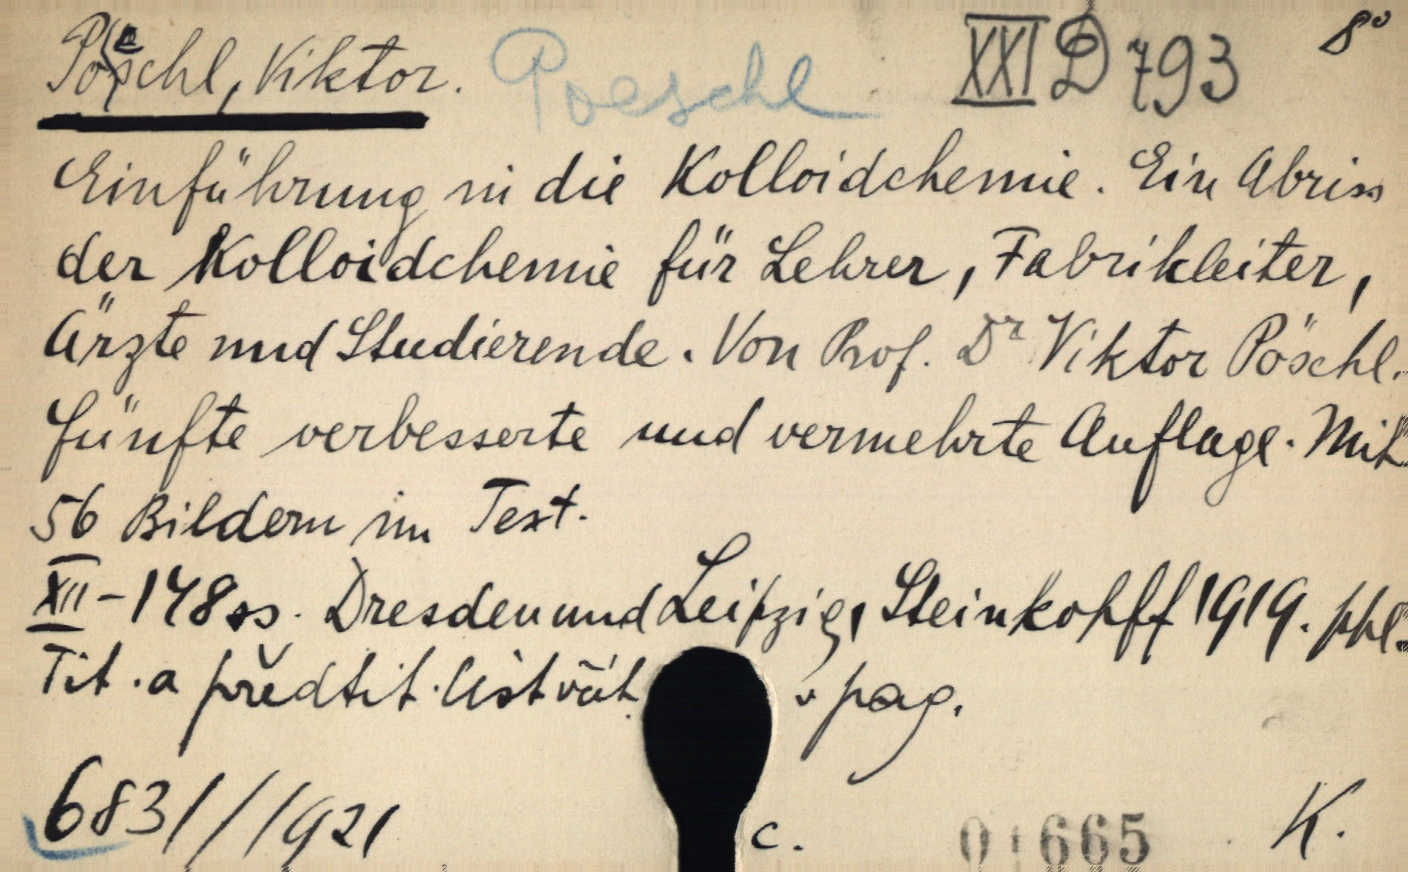 Pöschl, Viktor. Poeschl XXI D 793 8°
Einführung in die Kolloidchemie. Ein Abriss
der Kolloidchemie für Lehrer, Fabrikleiter,
Ärzte und Studierende. Von Prof. Dr Viktor Pöschl.
Fünfte verbesserte und vermehrte Auflage. Mit
56 Bildern im Text.
XII-148 ss. Dresden und Leipzig, Steinkopff 1919. ppl.
Tit. a předtit. list v pag.
683///1921 c. 665 K.